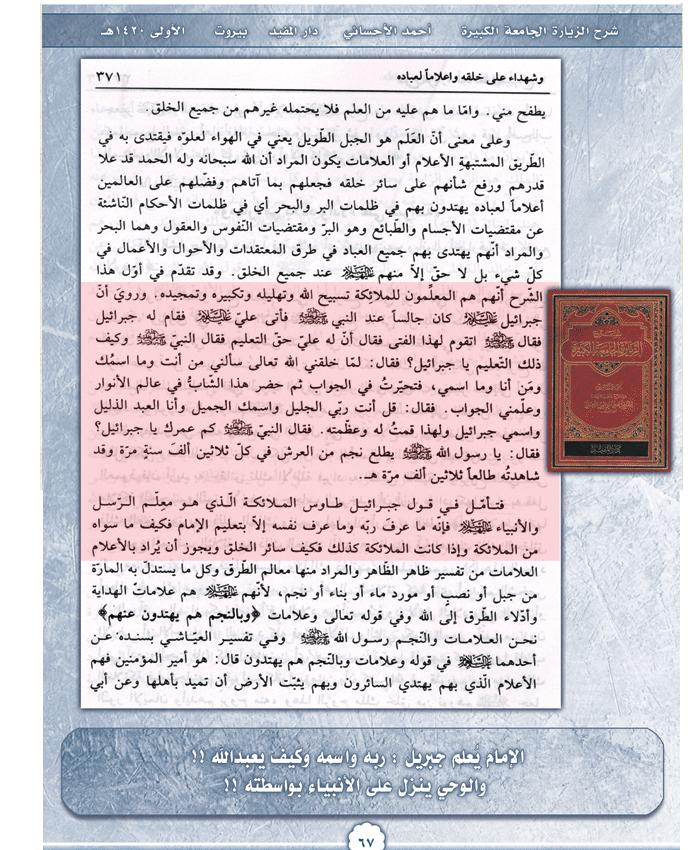 شرح الزيارة الجامعة الكبيرة أحمد الأحسائي دار المفيد بيروت الأولى ١٤٢٠هـ
وشهداء على خلقه واعلاماً لعباده ٣٧١
يطفح مني. وامّا ما هم عليه من العلم فلا يحتمله غيرهم من جميع الخلق.
وعلى معنى أنّ العَلَم هو الجبل الطّويل يعني في الهواء لعلوّه فيقتدى به في
الطّريق المشتبهة الأعلام أو العلامات يكون المراد أن الله سبحانه وله الحمد قد علا
قدرهم ورفع شأنهم على سائر خلقه فجعلهم بما آتاهم وفضّلهم على العالمين
أعلاماً لعباده يهتدون بهم في ظلمات البر والبحر أي في ظلمات الأحكام النّاشئة
عن مقتضيات الأجسام والطّبائع وهو البرّ ومقتضيات النّفوس والعقول وهما البحر
والمراد أنّهم يهتدى بهم جميع العباد في طرق المعتقدات والأحوال والأعمال في
كلّ شيء بل لا حقّ إلاّ منهم عليهم السلام عند جميع الخلق. وقد تقدّم في أوّل هذا
الشّرح أنّهم هم المعلّمون للملائكة تسبيح الله وتهليله وتكبيره وتمجيده. ورويَ أنّ
جبرائيل عليه السلام كان جالساً عند النبي صلى الله عليه وآله فأتى عليّ عليه السلام فقام له جبرائيل
فقال صلى الله عليه وآله اتقوم لهذا الفتى فقال أنّ له عليّ حقّ التعليم فقال النبيّ صلى الله عليه وآله وكيف
ذلك التّعليم يا جبرائيل؟ فقال: لمّا خلقني الله تعالى سألني من أنت وما اسمُك
ومَن أنا وما اسمي، فتحيّرتُ في الجواب ثم حضر هذا الشّابُّ في عالم الأنوار
وعلّمني الجواب. فقال: قل أنت ربّي الجليل واسمك الجميل وأنا العبد الذليل
واسمي جبرائيل ولهذا قمتُ له وعظّمته. فقال النبيّ صلى الله عليه وآله كم عمرك يا جبرائيل؟
فقال: يا رسول الله صلى الله عليه وآله يطلع نجم من العرش في كلّ ثلاثين ألفَ سنةٍ مرّة وقد
شاهدتُه طالعاً ثلاثين ألف مرّة هـ.
فتأمّل في قول جبرائيل طاوس الملائكة الّذي هو معلّم الرّسل
والأنبياء عليهم السلام فإنّه ما عرفَ ربّه وما عرف نفسه إلاّ بتعليم الإمام فكيف ما سواه
من الملائكة وإذا كانت الملائكة كذلك فكيف سائر الخلق ويجوز أن يُراد بالأعلام
العلامات من تفسير ظاهر الظّاهر والمراد منها معالم الطّرق وكل ما يستدلّ به المارّة
من جبل أو نصب أو مورد ماء أو بناء أو نجم، لأنّهم عليهم السلام هم علامات الهداية
وأدّلاء الطّرق إلى الله وفي قوله تعالى وعلامات ﴿وبالنجم هم يهتدون عنهم﴾
نحن العلامات والنّجم رسول الله صلى الله عليه وآله وفي تفسير العيّاشي بسنده عن
أحدهما عليه السلام في قوله وعلامات وبالنّجم هم يهتدون قال: هو أمير المؤمنين فهم
الأعلام الّذي بهم يهتدي السائرون وبهم يثبّت الأرض أن تميد بأهلها وعن أبي
الإمام يُعلم جبريل : ربه واسمه وكيف يعبدالله !!
والوحي ينزل على الأنبياء بواسطته !!
٦٧